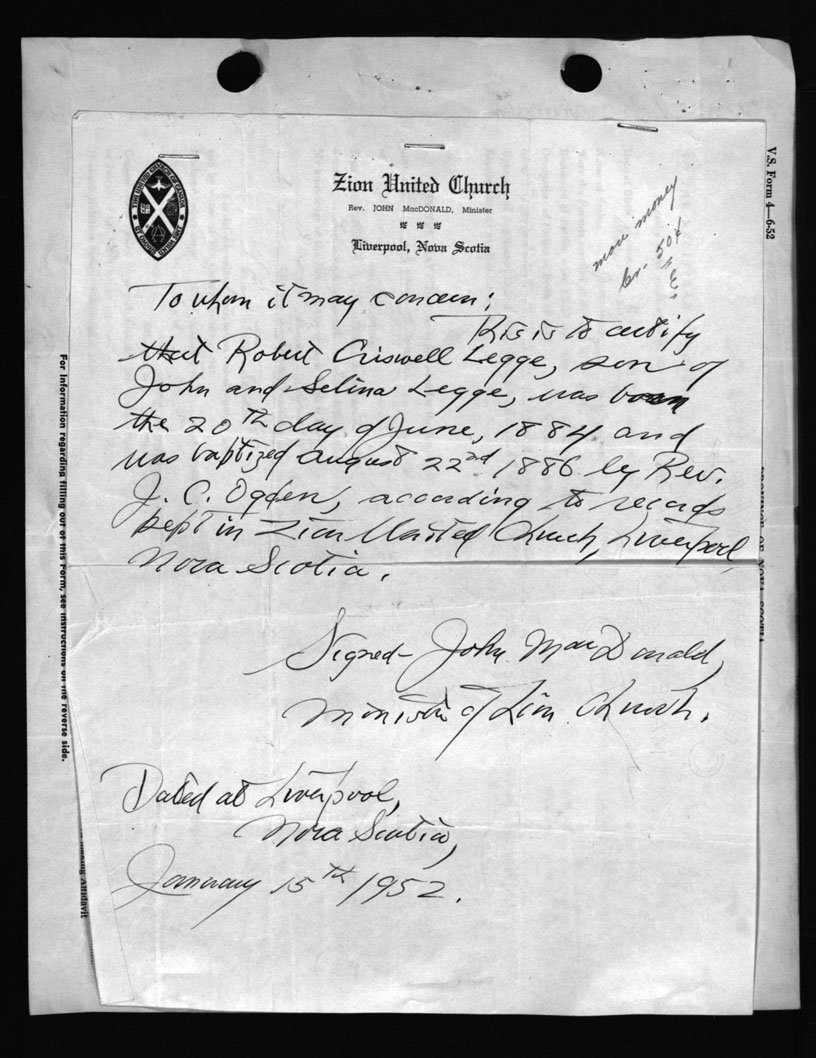 Zion United Church
Rev. JOHN MacDONALD, Minister
Liverpool, Nova Scotia
THE UNITED CHURCH OF CANADA
UT OMNES UNUM SINT
V.S. Form 4—6-52
more money
50¢
To whom it may concern;
This is to certify
that Robert Criswell Legge, son of
John and Selina Legge, was born
the 20th day of June, 1884 and
was baptized August 22nd 1886 by Rev.
J. C. Ogden, according to records
kept in Zion United Church, Liverpool,
Nova Scotia.
Signed- John MacDonald,
Minister of Zion Church.
Dated at Liverpool,
Nova Scotia,
January 15th 1952.
For information regarding filling out of this Form, see instructions on the reverse side.
Affidavit